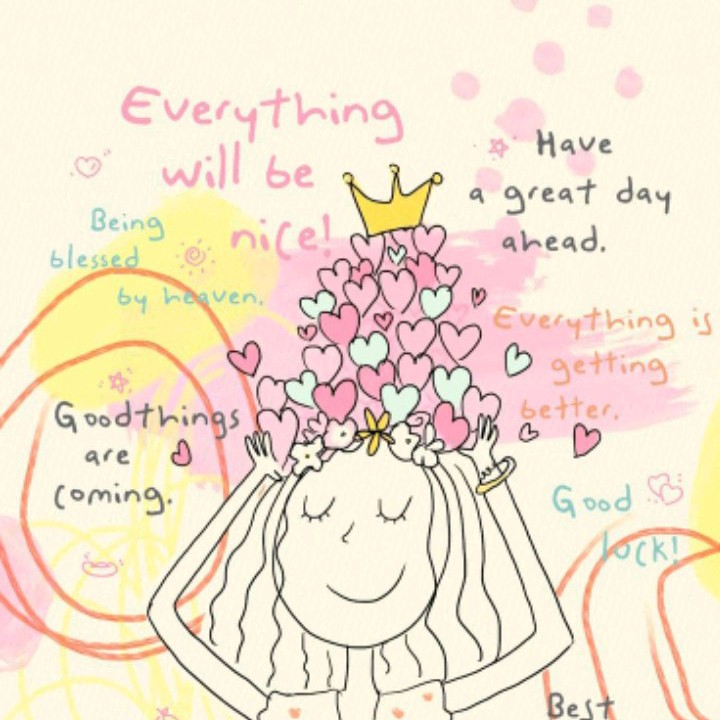 Everything
will be
nice!
Have
a great day
ahead.
Being
blessed
by heaven.
Everything is
getting
better.
Goodthings
are
coming.
Good
luck!
Best